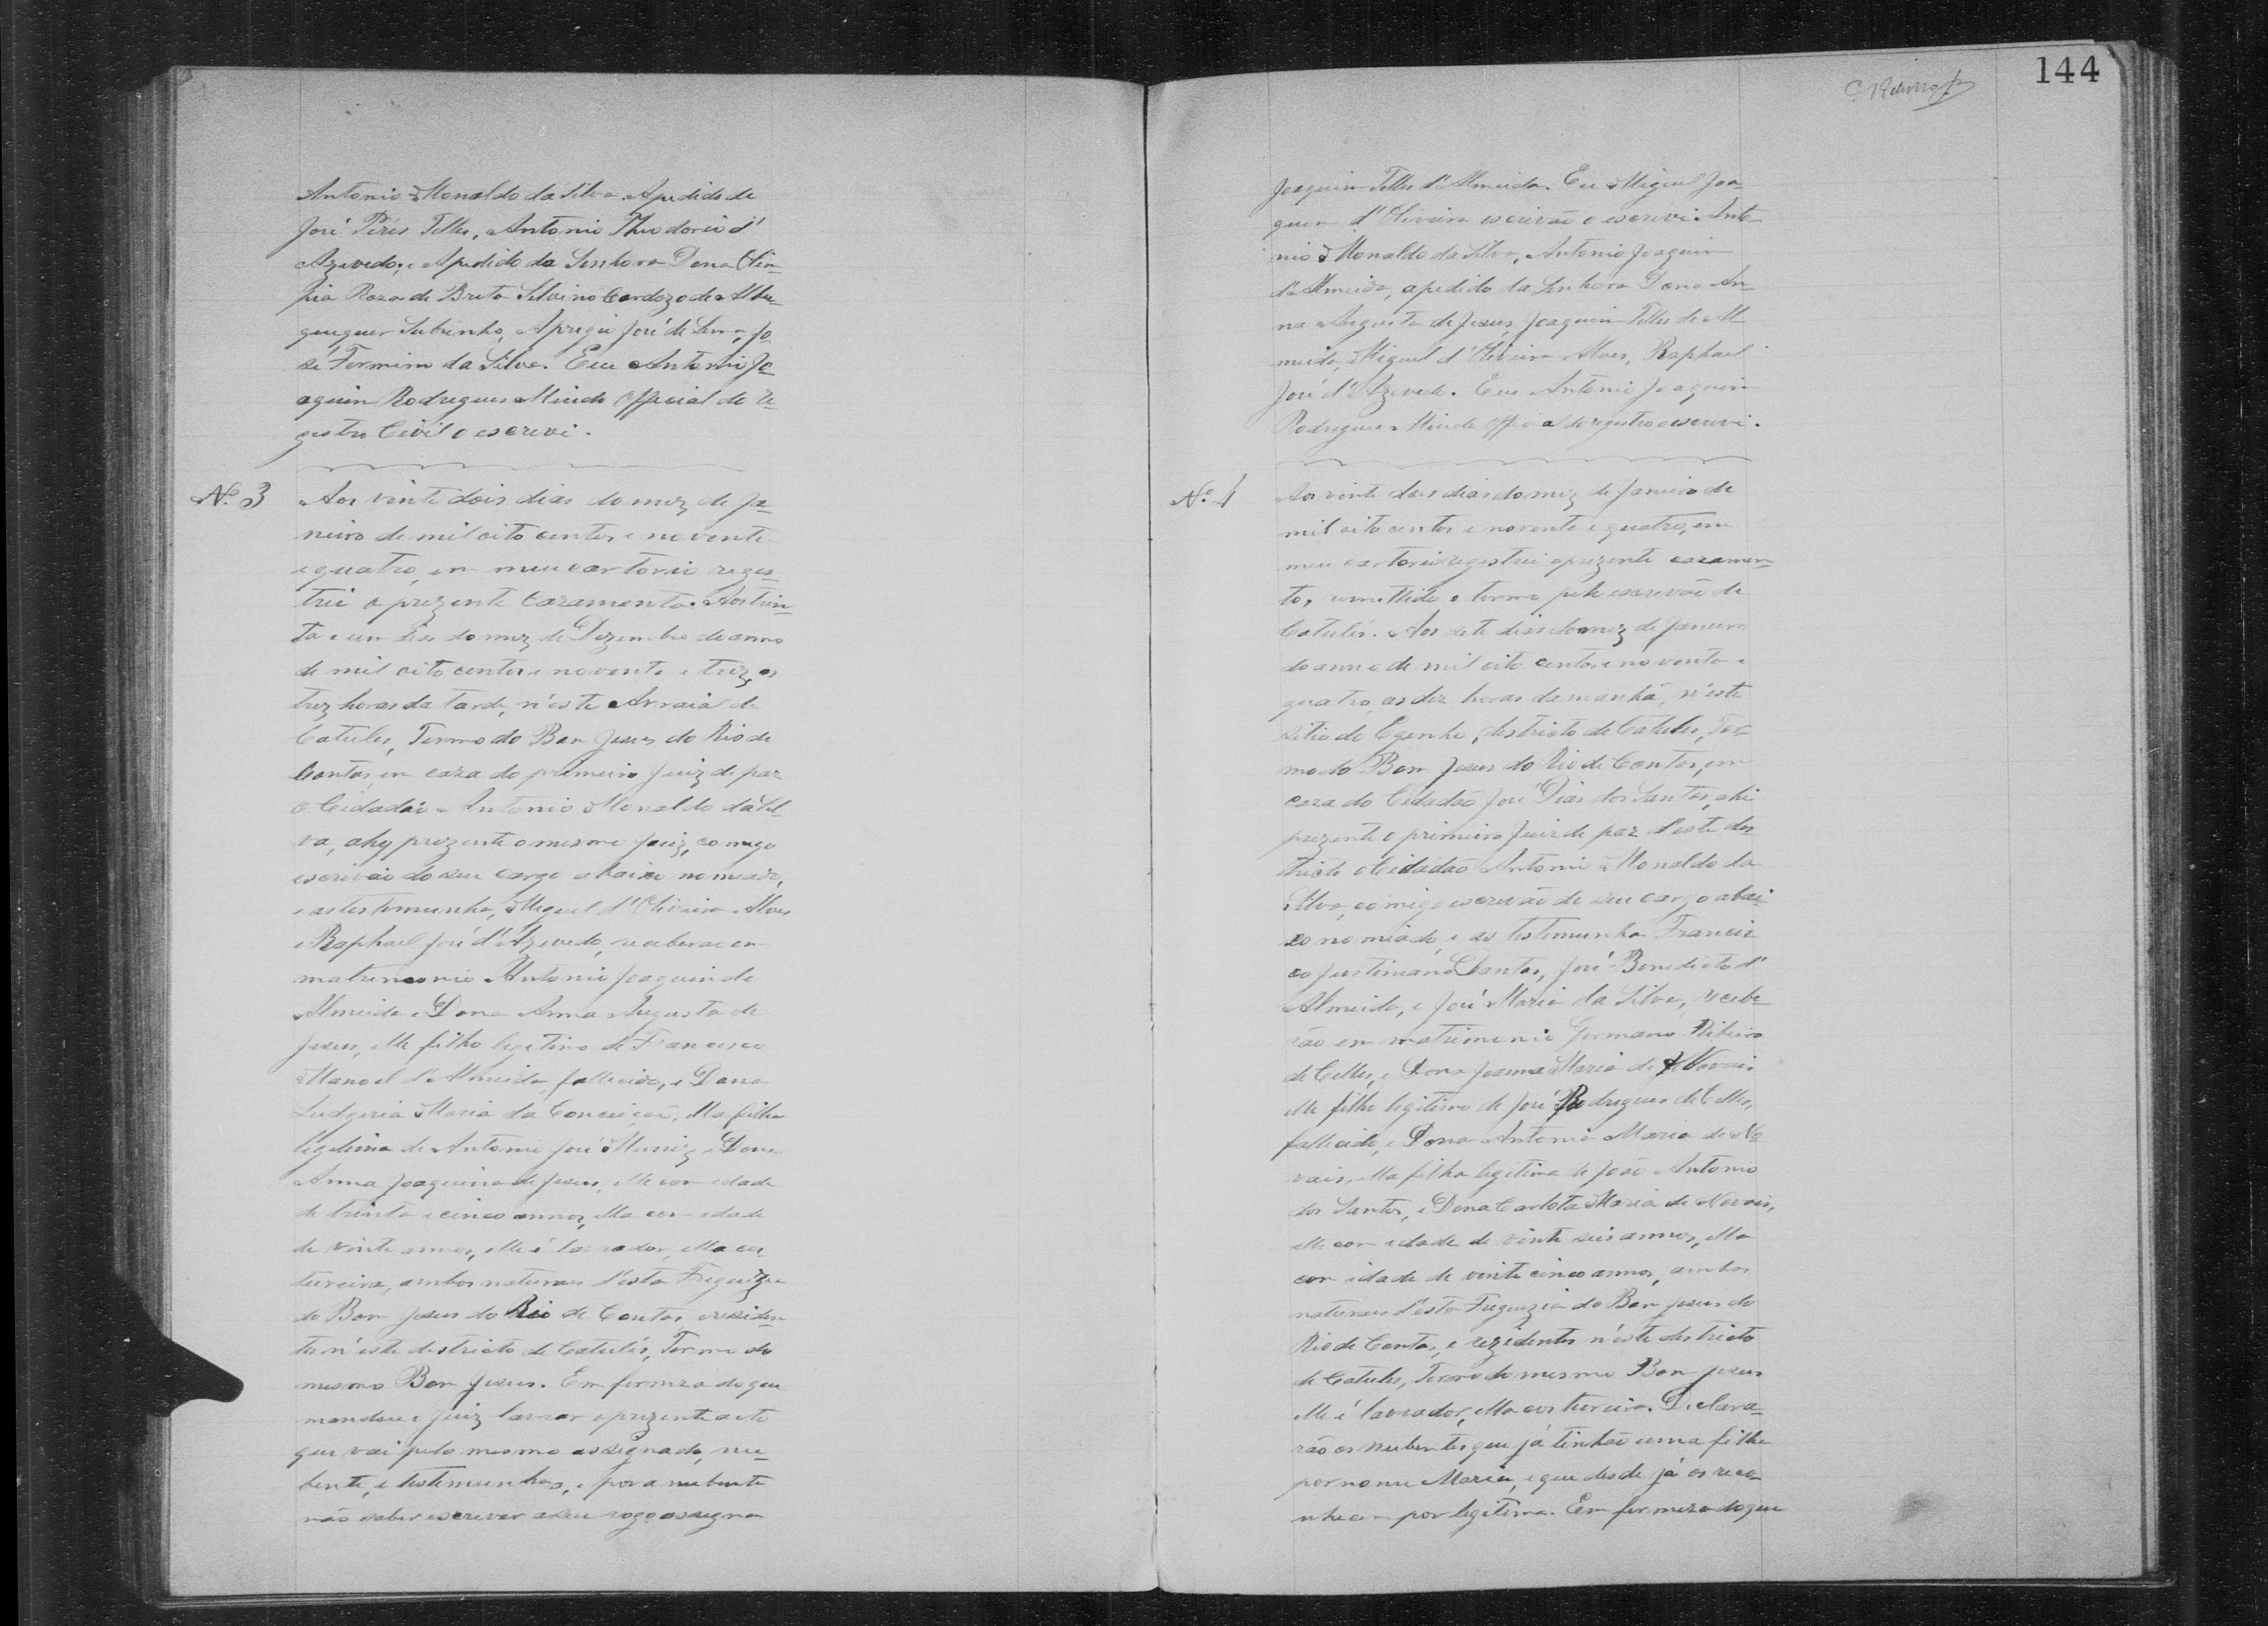 Antonio Monaldo da Silva. Apedido de
José Pires Telles, Antonio Theodorio d'
Azevedo, e Apedido da Senhora Dona Olim-
pia Roza de Brito Silvino Cardozo de Albu-
querquer Subrinho, Aprigio José de Lima, Jo-
sé Fermino da Silva. Eu Antonio Jo-
aquim Rodrigues Official do re-
gestro Civil o escrevi.
Nº 3
Aos vinte dois dias do mez de Ja-
neiro de mil oito centos e novente
e quatro, em meu cartorio reges-
trei o prezente cazamento. Aos trin-
ta e um dias do mez de Dezembro do anno
de mil oito centos e novente e trez, as
trez horas da tarde, n'este Arraial de
Catules, Termo do Bom Jesus do Rio de
Contas, em caza do primeiro Juiz de paz
o Cidadão Antonio Monaldo da Sil-
va, ahy prezente o mesmo Juiz, comigo
escrivão do seu cargo abaixo nomeado,
e as testemunhas, Miguel d'Oliveira Alves
e Raphael José d'Azevedo, receberão em
matrimonio Antonio Joaquim de
Almeida e Dona Anna Augusta de
Jesus, elle filho legitimo de Francisco
Manoel d'Almeida, fallecido, e Dona
Ludgeria Maria da Conceição, ella filha
legitima de Antonio José Muniz e Dona
Anna Joaquina de Jesus, elle com edade
de trinta e cinco annos, ella com edade
de vinte annos, elle é lavrador, ella cus-
tureira, ambos naturaes d'esta Freguezia
do Bom Jesus do Rio de Contas, e residen-
tes n'este destricto de Catulés, Termo do
mesmo Bom Jesus. Em firmeza do que
mandou o Juiz lavrar o prezente acto
que vai pelo mesmo assignado, nu-
bente, e testemunhas, e por a nubente
não saber escrever a seu rogo assigna
144
Joaquim Telles d'Almeida. Eu Miguel Joa-
quim d'Oliveira escrivão o escrevi. Anto-
nio Monaldo da Silva, Antonio Joaquim
d'Almeida, apedido da Senhora Dona An-
na Augusta de Jesus, Joaquim Telles de Al-
meida, Miguel d'Oliveira Alves, Raphael
José d'Azevedo. Eu Antonio Joaquim
Rodrigues Official do registro o escrevi.
Nº 4
Aos vinte dois dias do mez de Janeiro de
mil oito centos e novente e quatro, em
meu cartorio regestrei o prezente cazamen-
to, remettido o termo pelo escrivão de
Catulés. Aos sete dias do mez de Janeiro
do anno de mil oito centos e novente e
quatro, as dez horas da manhã, n'este
sitio do Egenho, destricto de Catules, Ter-
mo do Bom Jesus do Rio de Contas, em
caza do Cidadão José Dias dos Santos, ahi
prezente o primeiro Juiz de paz d'este des-
tricto o Cidadão Antonio Monaldo da
Silva, comigo escrivão de seu cargo abai-
xo nomiado, e as testemunhas Francis-
co Justiniano Dantas, José Benedicto d'
Almeida, e José Maria da Silva, recebe-
rão em matrimonio Germano Ribeiro
de Telles, e Dona Joanna Maria de Novais
elle filho legitimo de José Rodrigues de Telles,
fallecido, e Dona Antonia Maria de No-
vais, ella filha legitima de João Antonio
dos Santos, e Dona Carlota Maria de Novais,
elle com edade de vinte seis annos, ella
com idade de vinte cinco annos, ambos
naturaes d'esta Freguezia do Bom Jesus do
Rio de Contas, e rezidentes n'este destricto
de Catules, Termo do mesmo Bom Jesus
elle é lavrador, ella custureira. Declara-
rão os nubentes que já tinhão uma filha
por nome Maria, e que desde já os reco-
nhecem por legitima. Em firmeza do que